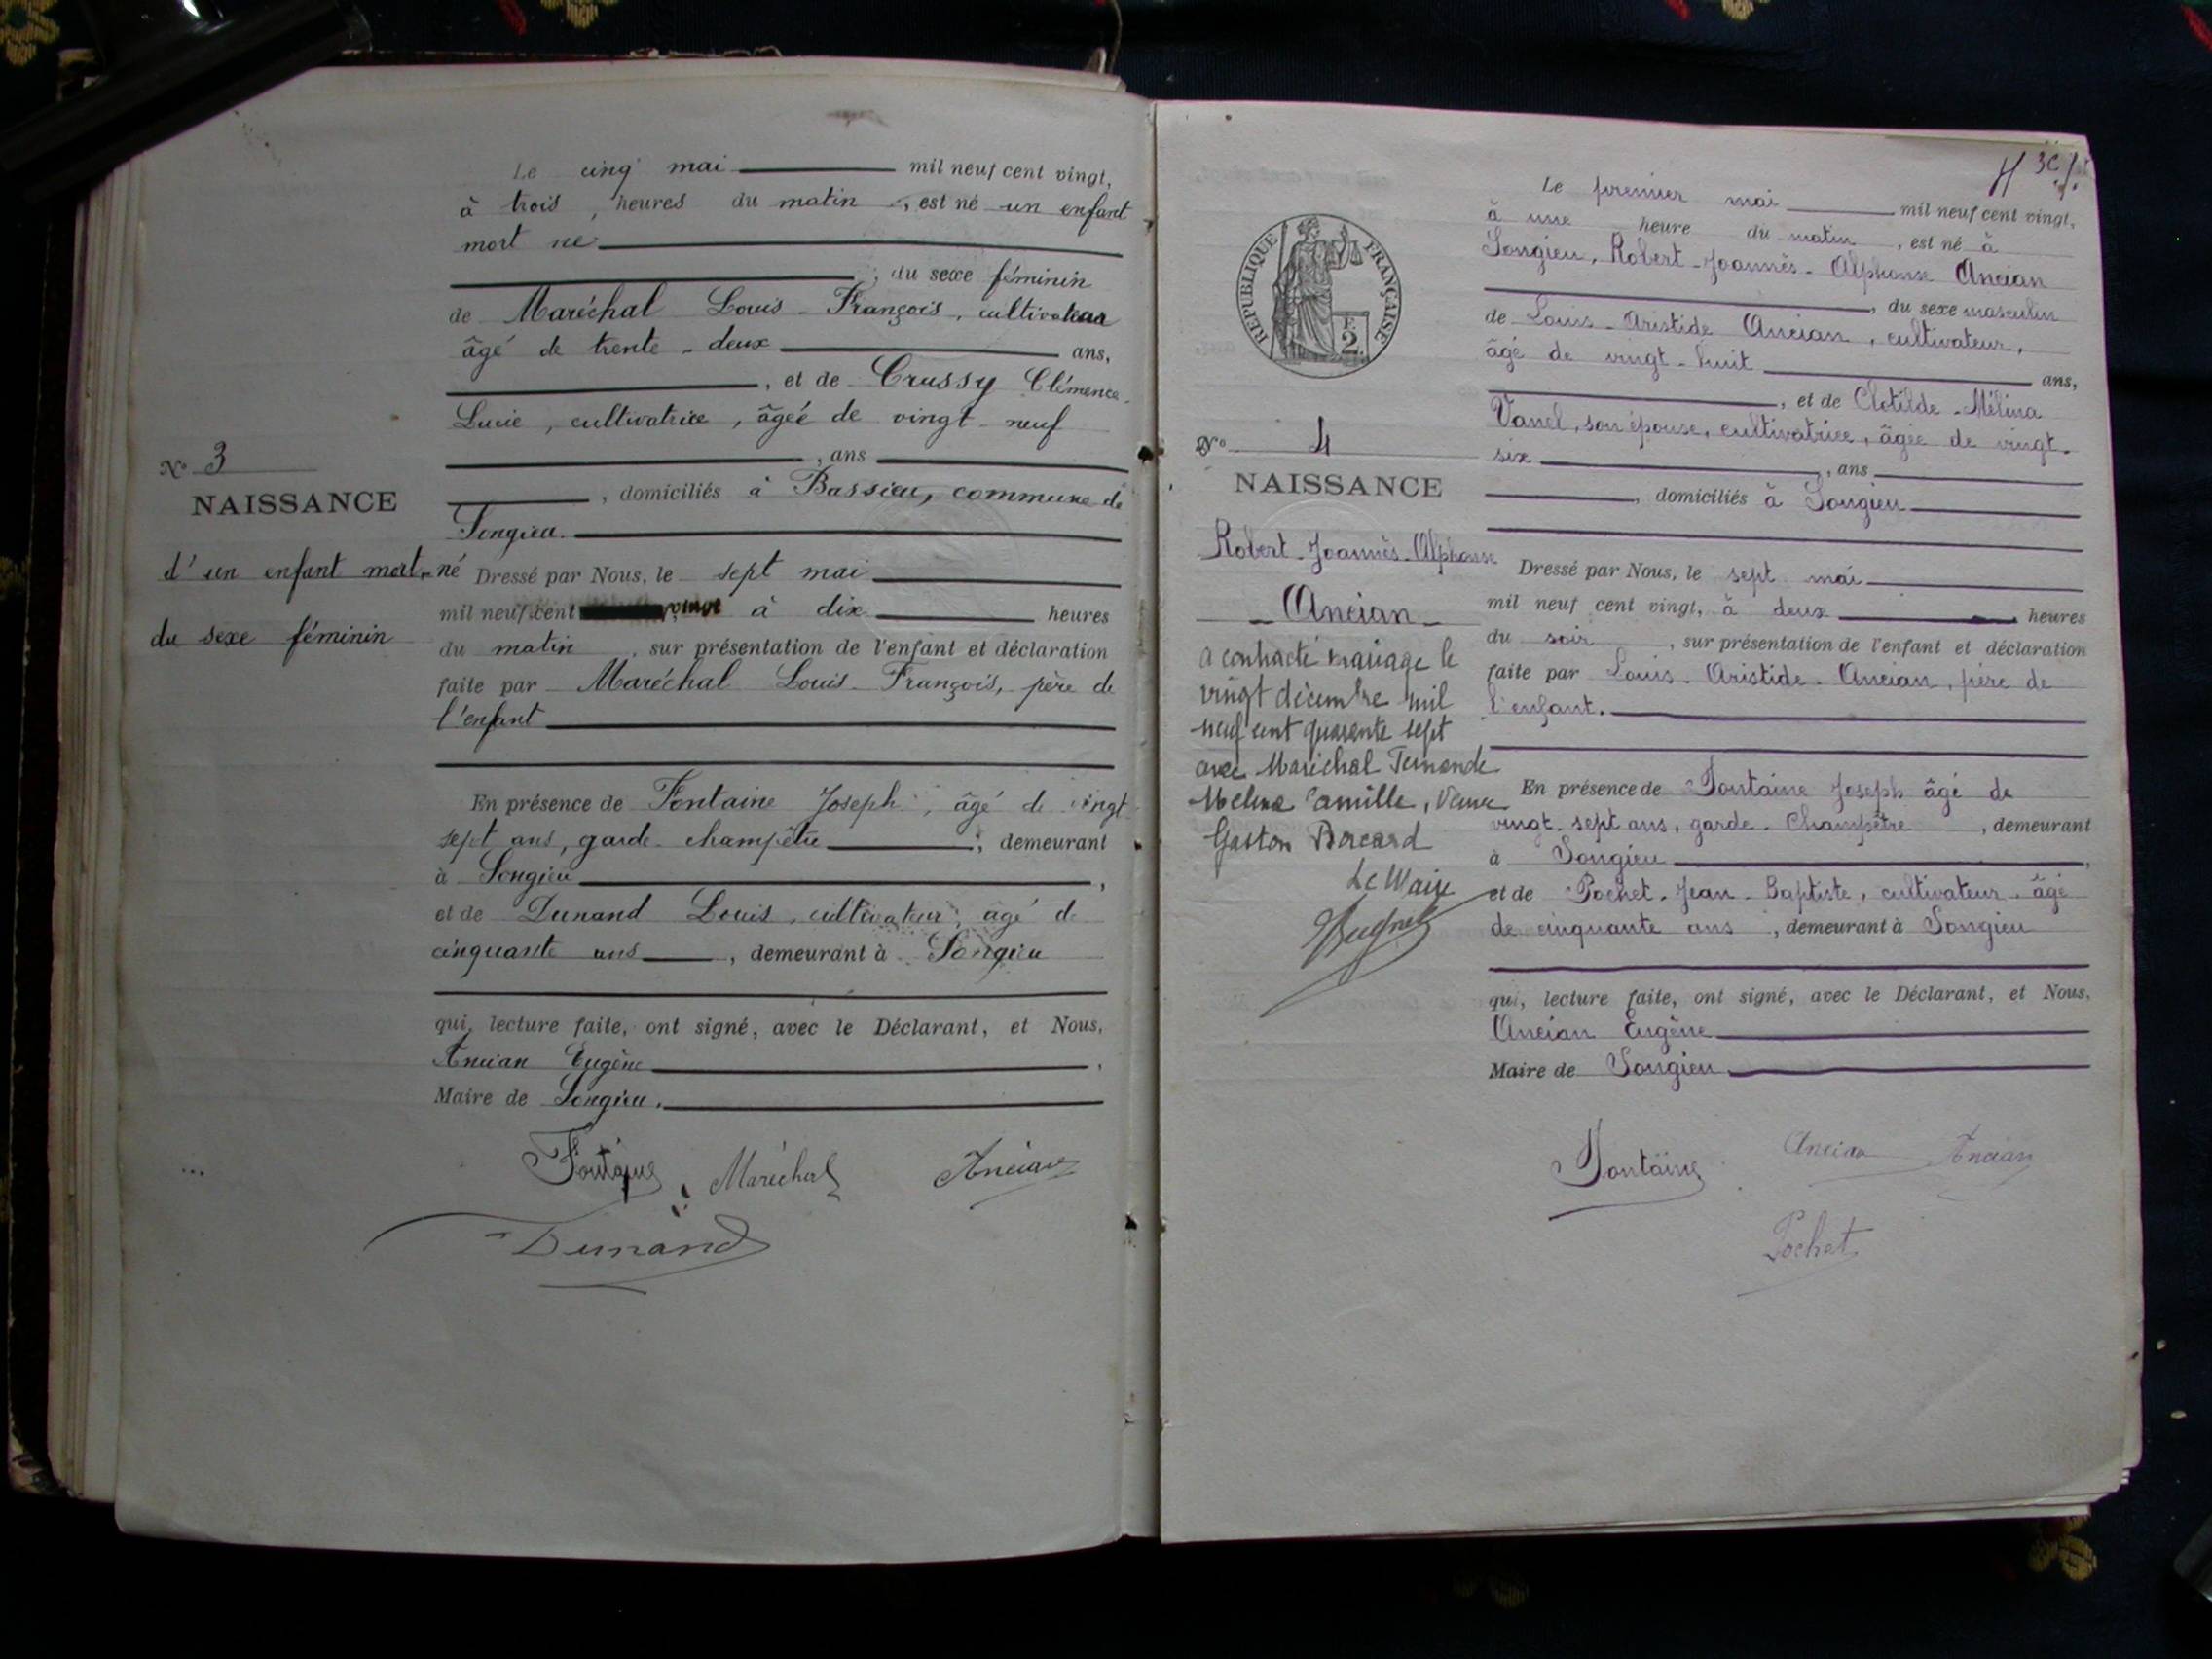 Le cinq mai mil neuf cent vingt,
à trois, heures du matin, est né un enfant
mort né
, du sexe féminin
de Maréchal Louis-François, cultivateur
âgé de trente-deux ans,
, et de Crussy Clémence
Lucie, cultivatrice, âgée de vingt-neuf
, ans
, domiciliés à Bassieu, commune de
Songieu.
N° 3
NAISSANCE
d'un enfant mort-né
du sexe féminin
Dressé par Nous, le sept mai
mil neuf cent vingt à dix heures
du matin, sur présentation de l'enfant et déclaration
faite par Maréchal Louis-François, père de
l'enfant
En présence de Fontaine Joseph, âgé de vingt
sept ans, garde-champêtre; demeurant
à Songieu,
et de Dunand Louis, cultivateur, âgé de
cinquante ans, demeurant à Songieu
qui, lecture faite, ont signé, avec le Déclarant, et Nous,
Ancian Eugène,
Maire de Songieu.
Fontaine Maréchal Ancian
Dunand
Le premier mai mil neuf cent vingt,
à une heure du matin, est né à
Songieu, Robert-Joannès-Alphonse Ancian
, du sexe masculin
de Louis-Aristide Ancian, cultivateur,
âgé de vingt-huit ans,
, et de Clotilde-Mélina
Vanel, son épouse, cultivatrice, âgée de vingt-
six, ans
, domiciliés à Songieu
RÉPUBLIQUE FRANÇAISE
2
N° 4
NAISSANCE
Robert-Joannès-Alphonse
Ancian
a contracté mariage le
vingt décembre mil
neuf cent quarante sept
avec Maréchal Fernande
Melina Camille, Veuve
Gaston Bocard
Le Maire
Dressé par Nous, le sept mai
mil neuf cent vingt, à deux heures
du soir, sur présentation de l'enfant et déclaration
faite par Louis-Aristide-Ancian, père de
l'enfant.
En présence de Fontaine Joseph âgé de
vingt-sept ans, garde-Champêtre, demeurant
à Songieu,
et de Pochet-Jean-Baptiste, cultivateur-âgé
de cinquante ans, demeurant à Songieu
qui, lecture faite, ont signé, avec le Déclarant, et Nous,
Ancian Eugène
Maire de Songieu.
Fontaine Ancian Ancian
Pochet